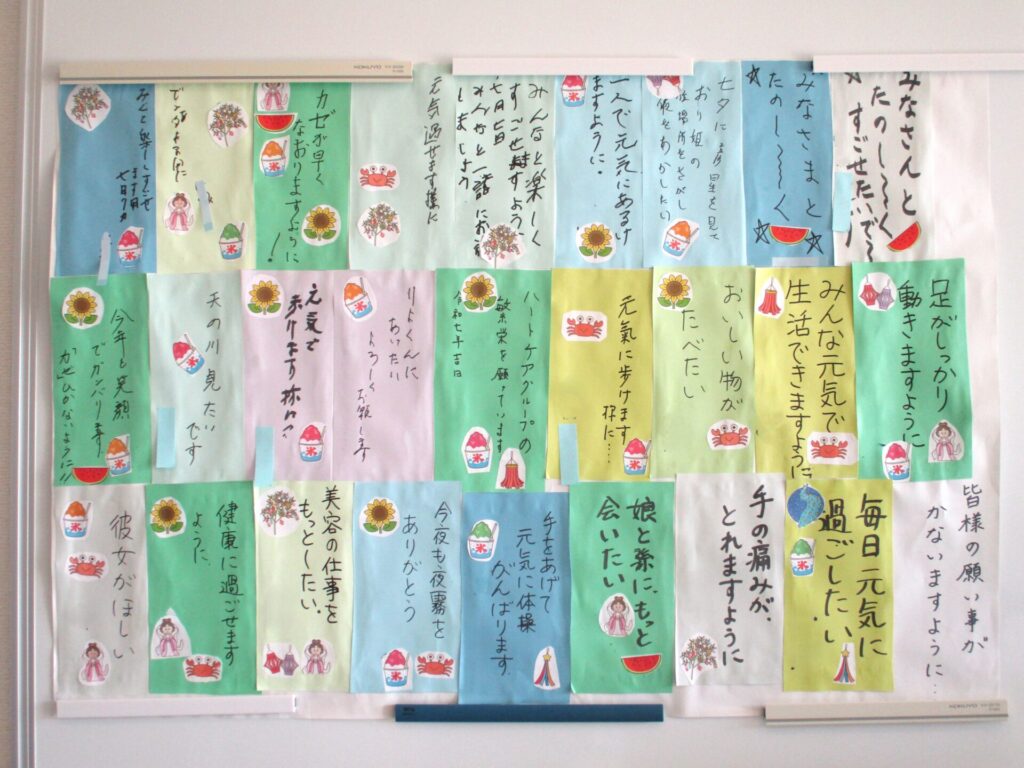 KOKUYO
みなさんと
たのし〜〜く
すごせたいで〜
みなさまと
たのし〜〜〜く
七夕に
星を見て
おり組の
一人で元気にあるけ
ますように。
みんなと楽しく
すごせますよう
七月七日
みんなと一諸にお
しましょう
元気過せます様に
カゼが早く
なおりますように
!
足がしっかり
動きますように
みんな元気で
生活できますように
おいしい物が
たべたい
元氣に歩けます
様に…
ハートケアグループの
繁栄を願っています
令和七年吉日
あいたい
よろしく
お願します
元気で
歩けます様に
天の川見たい
です
今年も笑顔
でガンバリます
かぜひかないように!!
皆様の願い事が
かないますように…
毎日元気に
過ごしたい
手の痛みが、
とれますように
娘と孫に、もっと
会いたい
手をあげて
元気に体操
がんばります
今夜も夜霧を
ありがとう
美容の仕事を
もっとしたい。
健康に過ごせます
ように、
彼女がほしい
KOKUYO